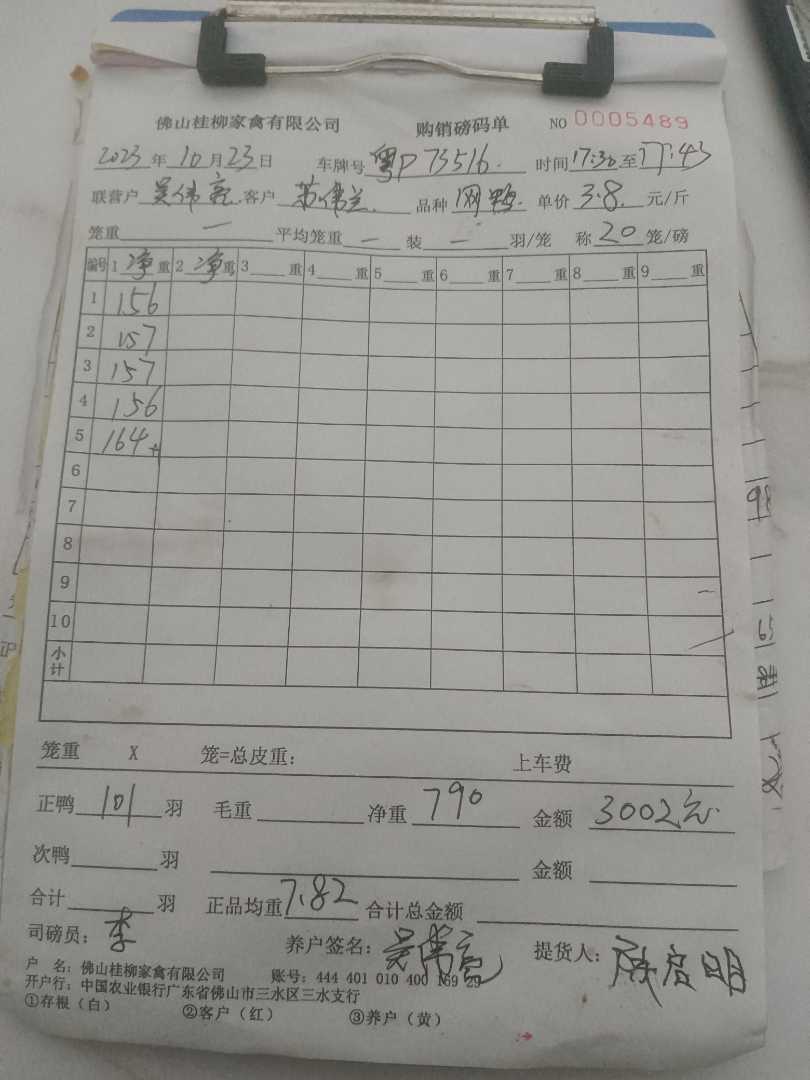 佛山桂柳家禽有限公司 购销磅码单 NO 0005489
2023年10月23日 车牌号 粤P73516 时间 17:30至17:43
联营户 吴伟亮 客户 苏伟兰 品种 网鸭 单价 3.8 元/斤
笼重 — 平均笼重 — 装 — 羽/笼 称 20 笼/磅
编号 1 净 重 2 净 重 3 重 4 重 5 重 6 重 7 重 8 重 9 重
1 156
2 157
3 157
4 156
5 164
6
7
8
9
10
小计
笼重 X 笼=总皮重: 上车费
正鸭 101 羽 毛重 净重 790 金额 3002元
次鸭 羽 金额
合计 羽 正品均重 7.82 合计总金额
司磅员: 李 养户签名: 吴伟亮 提货人: 启明
户 名: 佛山桂柳家禽有限公司 账号: 444 401 010 400 169 29
开户行: 中国农业银行广东省佛山市三水区三水支行
①存根(白) ②客户(红) ③养户(黄)